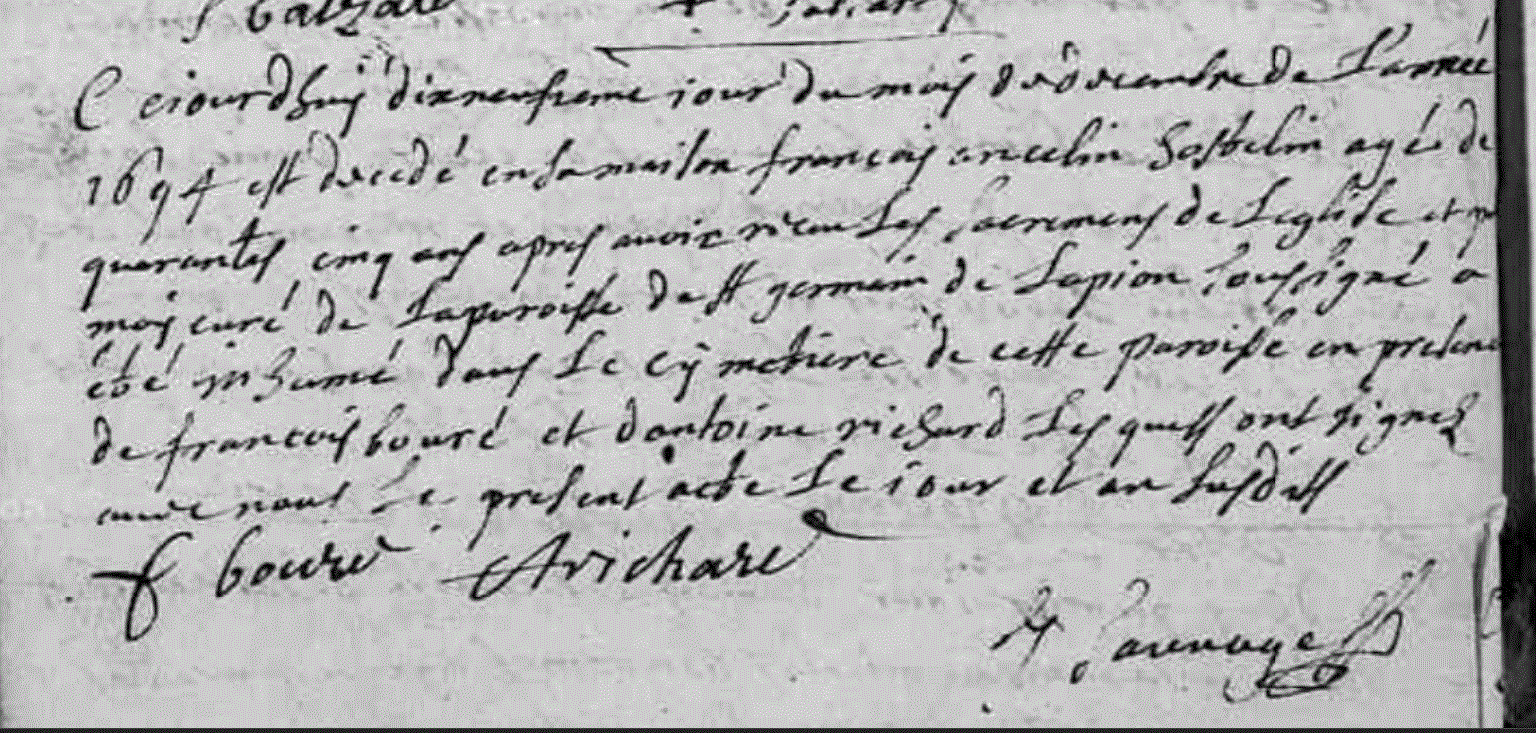 Ceiourdhuy dixneufieme iour du mois de novembre de L'année
1694 est decedé en sa maison françois ancelin hostelin agé de
quarantes cinq ans apres avoir receu Les sacremens de Leglise et p
moy curé de La paroisse de st germain de Lapion soussigné a
esté inhumé dans Le Cymetiere de cette paroisse en presence
de francois bouré et d'antoine richard Les quels ont signez
avec nous Le present acte Le iour et an susdits
f bouré A richard
Sauvage